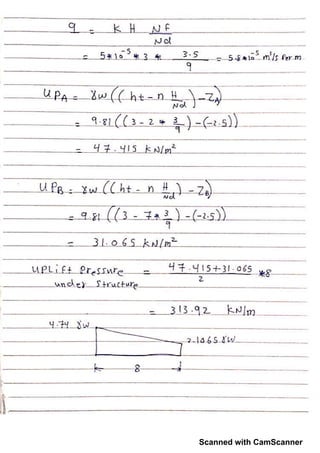 q = K H Nf/Nd
= 5*10^-5 * 3 * 3.5/9 = 5.8*10^-5 m³/s Per m
UPA = γw((ht - n H/Nd) - ZA)
= 9.81((3 - 2 * 3/9) - (-2.5))
= 47.415 kN/m²
UPB = γw((ht - n H/Nd) - ZB)
= 9.81((3 - 7 * 3/9) - (-2.5))
= 31.065 kN/m²
UPLift Pressure = 47.415+31.065/2 *8
under Structure
= 313.92 kN/m
4.74 γw
3.1065 γw
8
Scanned with CamScanner